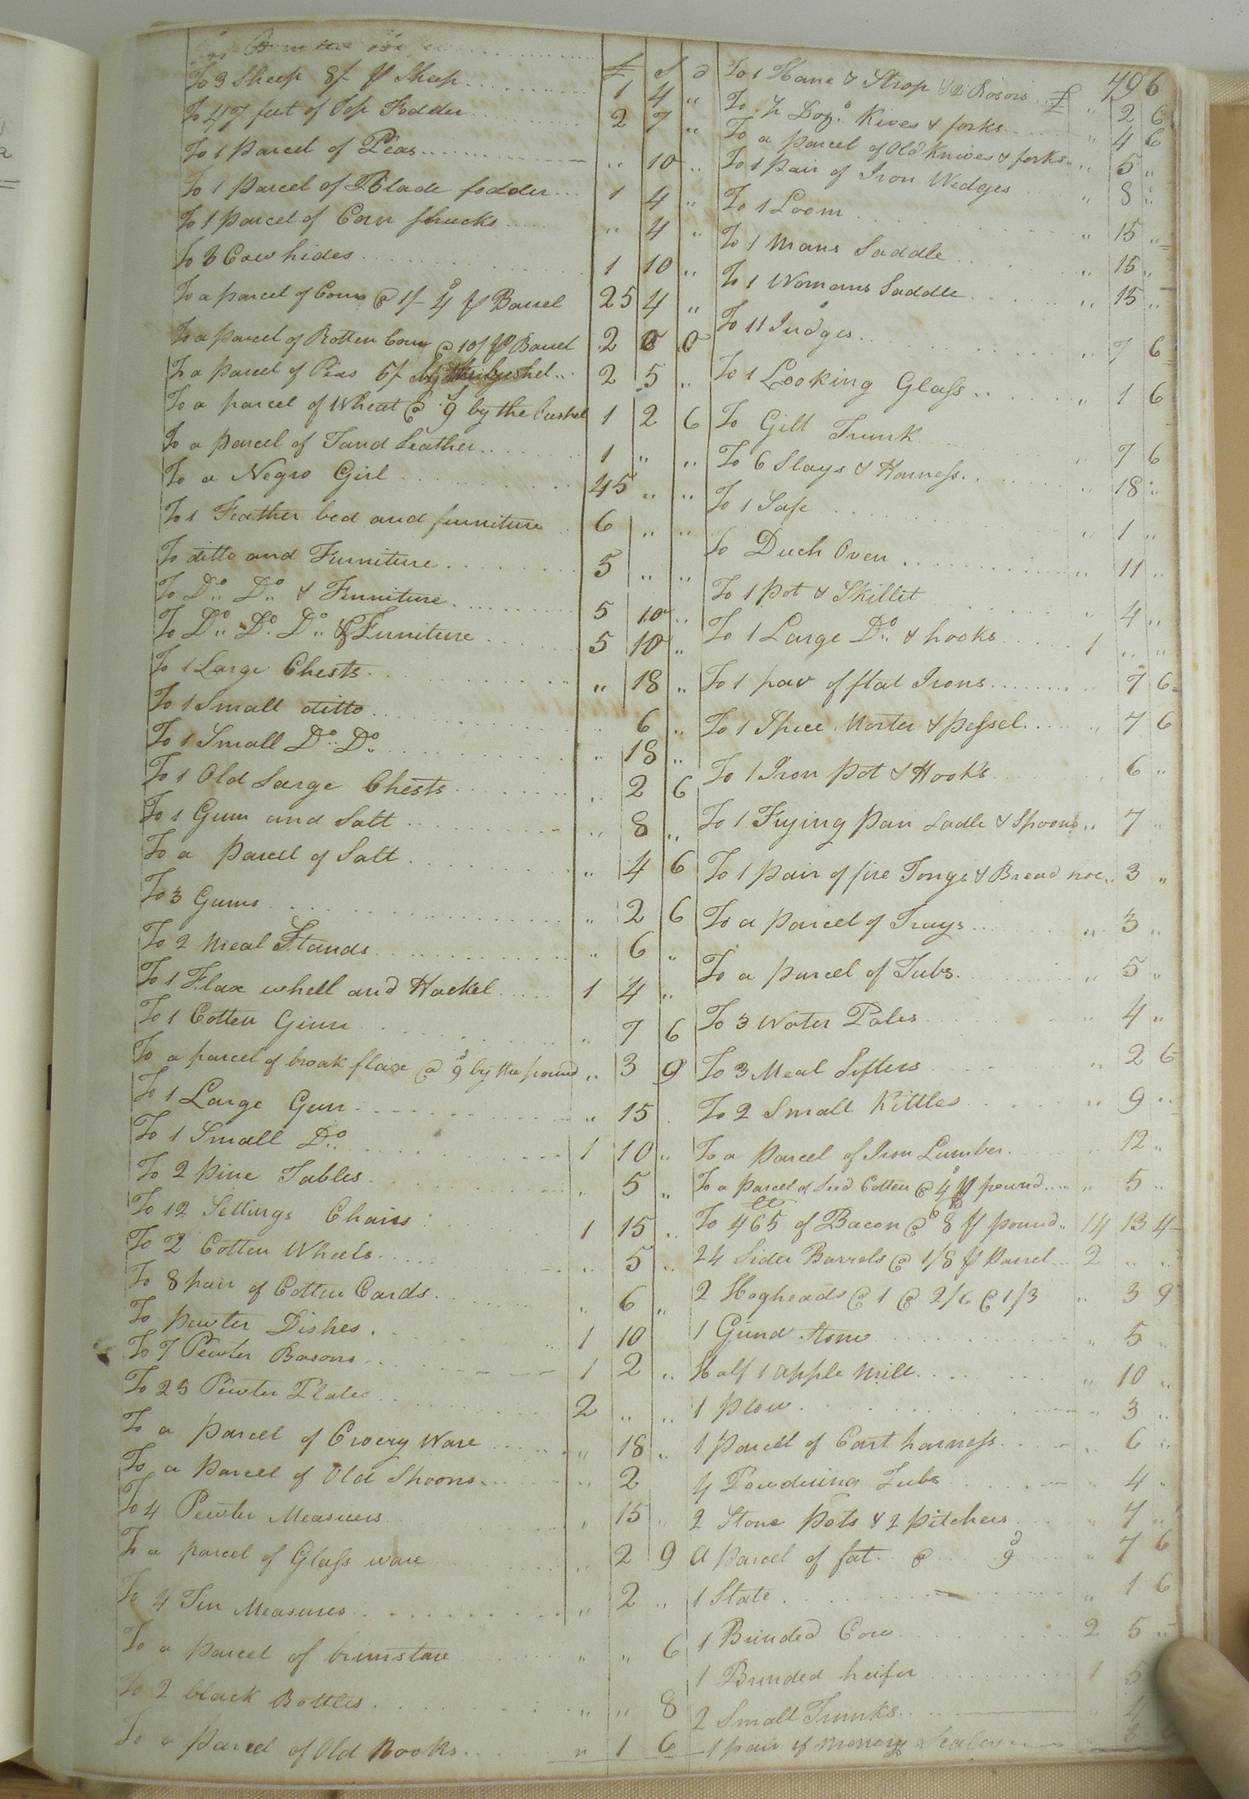 £ S d
To 3 Sheep 8/ P Sheep 1 4 "
To 47 feet of Top Fodder 2 7 "
To 1 Parcel of Peas " 10 "
To 1 Parcel of Blade fodder 1 4 "
To 1 parcel of Corn Shucks " 4 "
To 3 Cow hides 1 10 "
To a parcel of Corn @ 1/ P Barrel 25 4 "
To a parcel of Rotten Corn @ 10/ P Barrel 2 0 0
To a parcel of Peas 6/ 2 5 "
To a parcel of Wheat @ 9 by the bushel 1 2 6
To a parcel of Tand Leather 1 " "
To a Negro Girl 45 " "
To 1 Feather bed and furniture 6 " "
To ditto and Furniture 5 " "
To Do Do & Furniture 5 10 "
To Do Do Do & Furniture 5 10 "
To 1 Large Chests " 18 "
To 1 Small ditto 6 "
To 1 Small Do Do " 18 "
To 1 Old Large Chests " 2 6
To 1 Gum and Salt " 8 "
To a Parcell of Salt " 4 6
To 3 Gums " 2 6
To 2 Meal Stands " 6 "
To 1 Flax whell and Hackel 1 4 "
To 1 Cotten Ginn " 7 6
To a parcel of broak flax @ 9d by the pound " 3 9
To 1 Large Gun " 15
To 1 Small Do 1 10 "
To 2 pine Tables " 5 "
To 12 Settings Chairs 1 15 "
To 2 Cotten Wheels " 5 "
To 8 pair of Cotten Cards " 6 "
To pewter Dishes 1 10
To 7 Pewter Basons 1 2 "
To 25 Pewter Plates 2 " "
To a parcell of Crocry Ware " 18 "
To a Parcell of Old Spoons " 2
To 4 Pewter Measuers " 15 "
To a parcel of Glass ware " 2 9
To 4 Tin Measures " 2 "
To a parcel of brimstone " " 6
To 2 black Bottles " " 8
To a Parcel of Old Books " 1 6
To 1 Hane & Strop & 2 Rosors £ 496
To ½ Dozn Kives & forks " 2 6
To a parcel of Old Knives & forks " 4 6
To 1 pair of Iron Wedges " 5 "
To 1 Loom " 8 "
To 1 Mans Saddle " 15 "
To 1 Womans Saddle " 15 "
To 11 Judges " 15 "
To 1 Looking Glass " 7 6
To Gilt Trunk " 1 6
To 6 Slays & Harness " 7 6
To 1 Safe " 18 "
To Duch Oven " 1 "
To 1 Pot & Skillet " 11 "
To 1 Large Do & hooks " 4 "
1 " "
To 1 par of flat Irons " 7 6
To 1 Spice Morter & pessel " 7 6
To 1 Iron Pot & Hooks 6 "
To 1 Frying Pan Ladle & Spoons " 7 "
To 1 pair of fire Tongs & Bread hoe " 3 "
To a parcel of Trays " 3 "
To a parcel of Tubs " 5 "
To 3 Water Pales 4 "
To 3 Meal Sifters " 2 6
To 2 Small Kittles " 9 "
To a Parcel of Iron Lumber 12 "
To a Parcel of Seed Cotten @ 4 P pound " 5 "
To 465 lb of Bacon @ 8 P pound 14 13 4
24 Sider Barrels @ 1/8 P Barrel 2 " "
2 Hogheads @ 1 @ 2/6 @ 1/3 " 3 9
1 Grind Stone " 5 "
Half 1 apple Mill " 10 "
1 plow " 3 "
1 Parcell of Cart harness " 6 "
4 Powdering Tubs " 4 "
2 Stone Pots & 2 pitchers " 7 "
A Parcel of fat @ 9d " 7 6
1 Slate " 1 6
1 Brinded Cow 2 5 "
1 Brinded heifer 1 5
2 Small Trunks " 4
1 pair of money Scales " 3